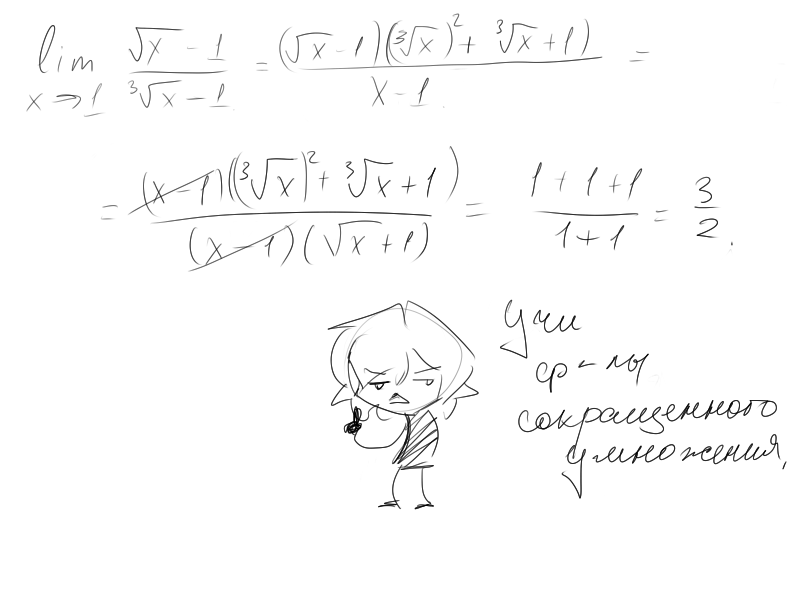 lim x→1 (√x - 1)/(³√x - 1) = (√x - 1)((³√x)² + ³√x + 1)/(x - 1) =
= (x - 1)((³√x)² + ³√x + 1)/((x - 1)(√x + 1)) = (1 + 1 + 1)/(1 + 1) = 3/2.
Учи
ф-лы
сокращенного
умножения,